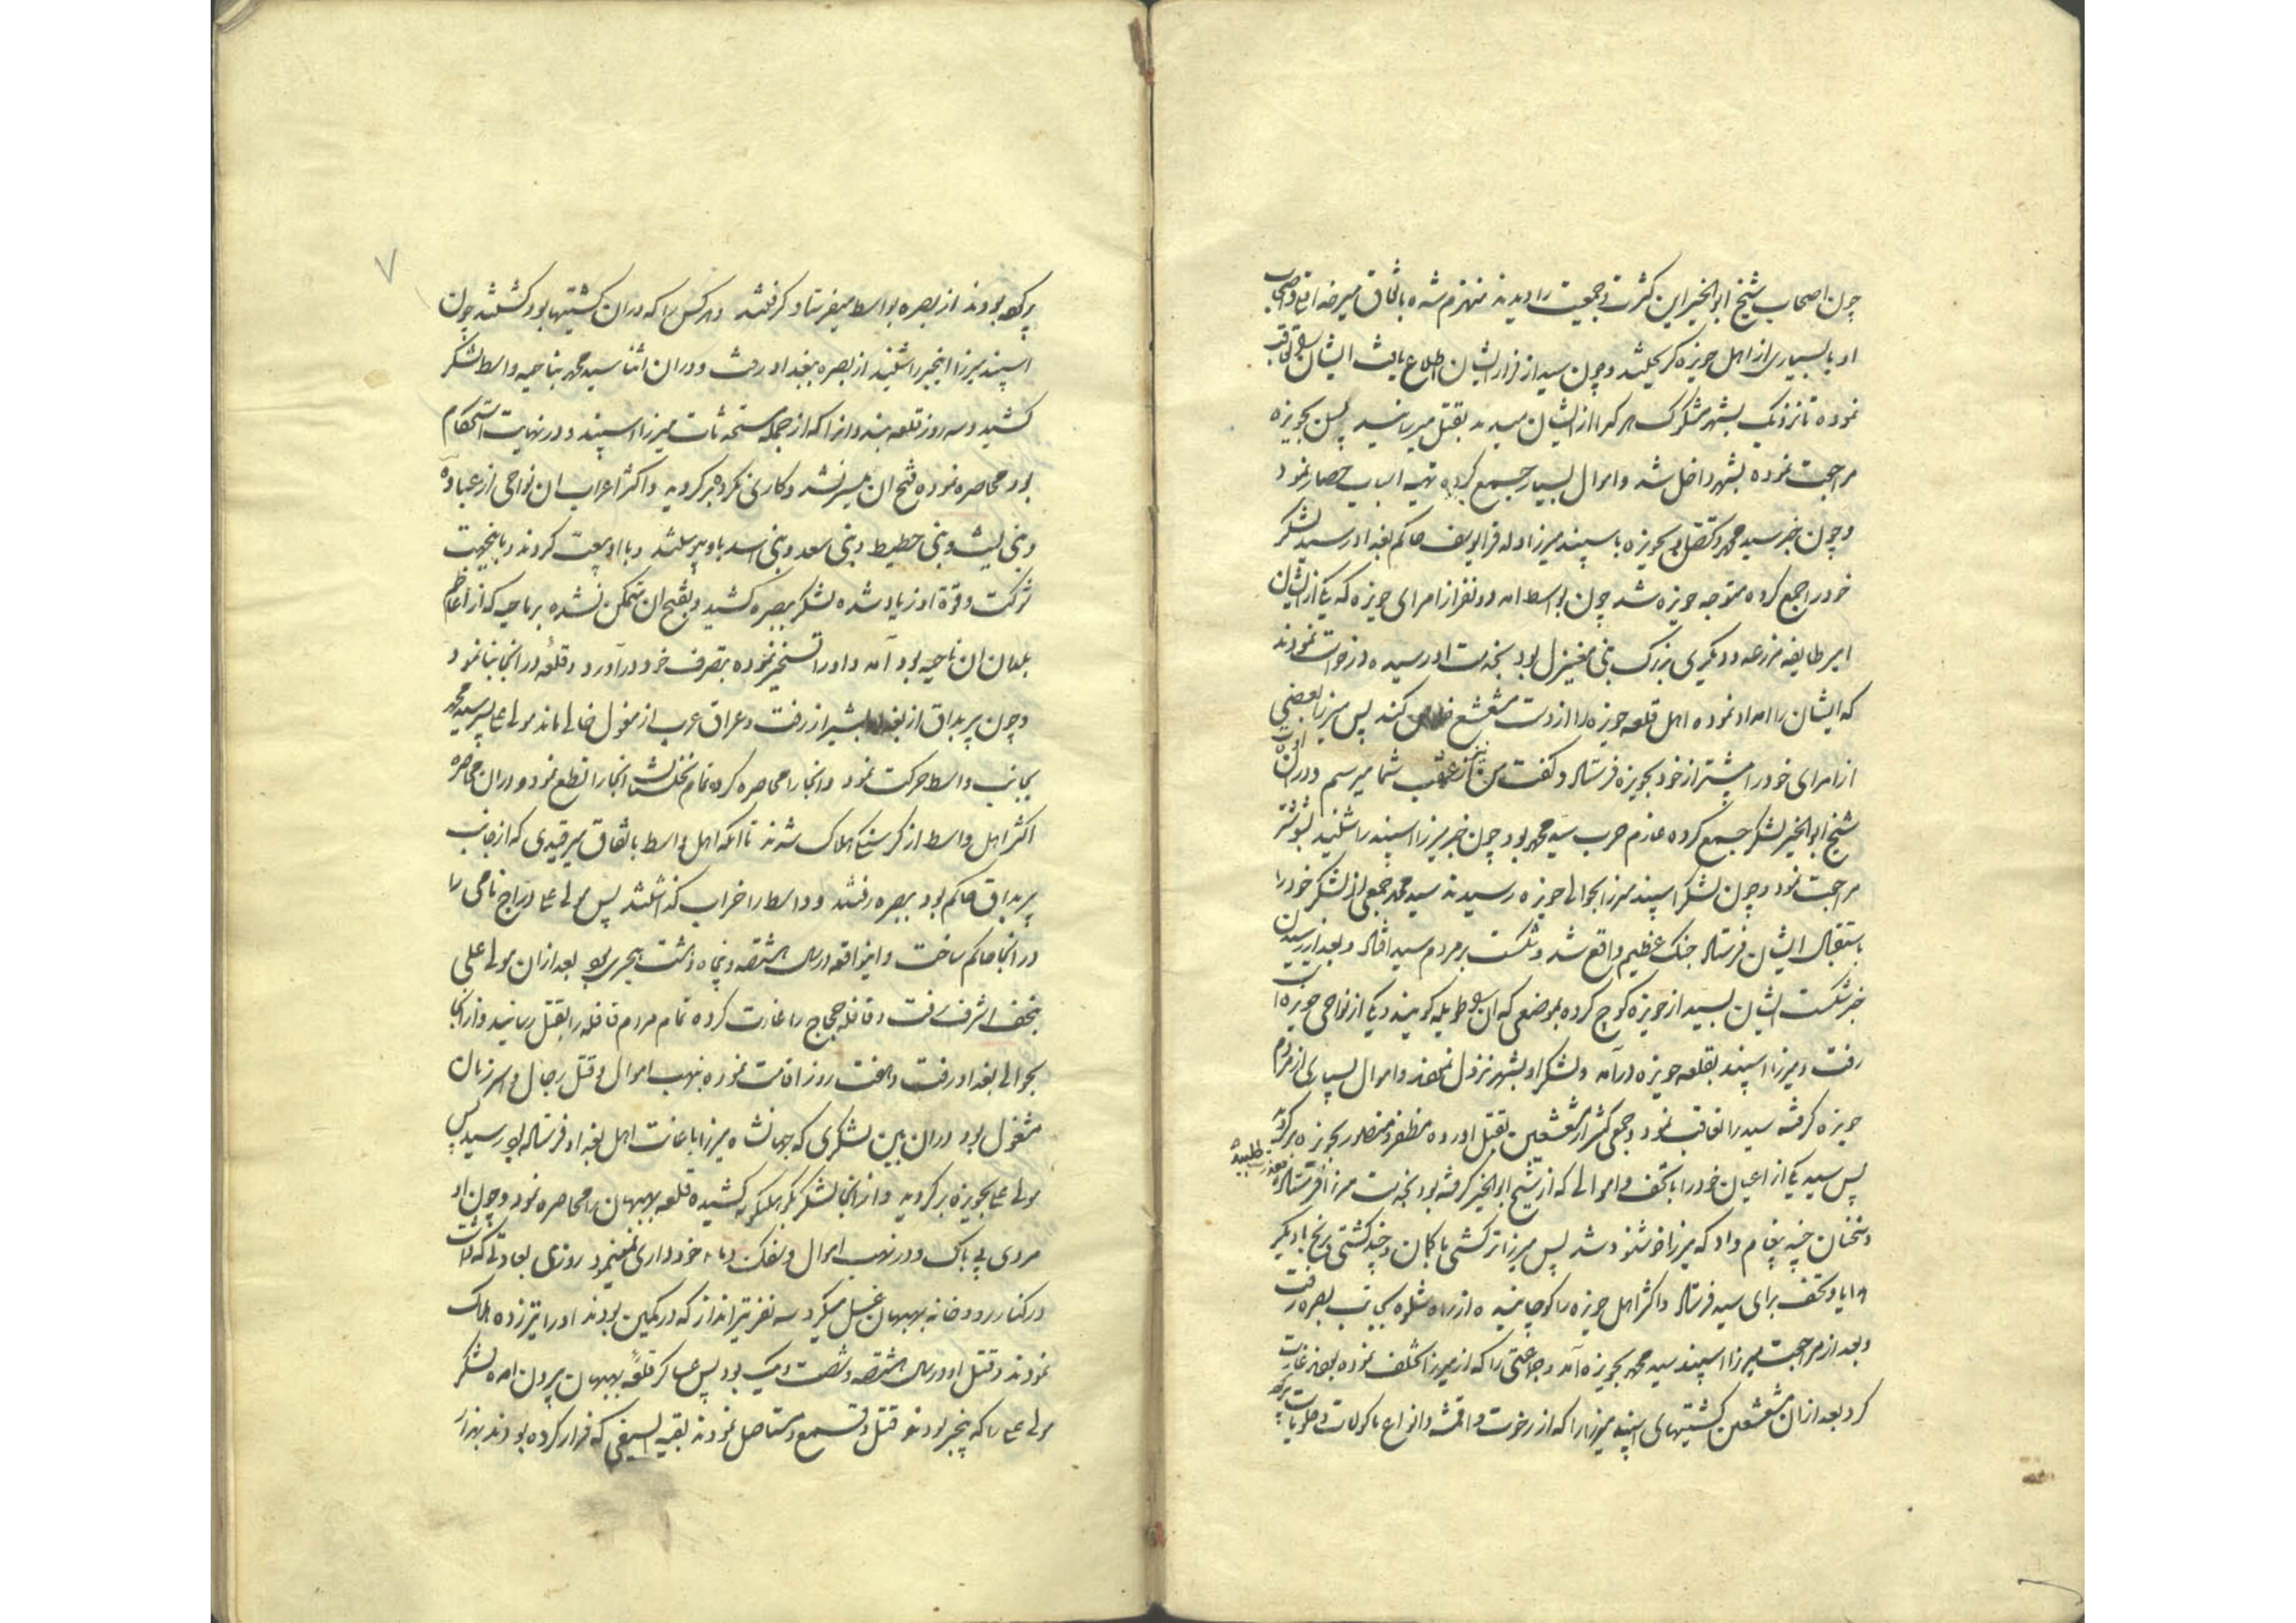 چون اصحاب شیخ ابوالخیر این کثرت و جمعیت را دیدند منهزم شده باتفاق میر خدا قلی و اصحاب
او با بسیاری از اهل حویزه گریختند و چون سید از فرار ایشان اطلاع یافت ایشان را تعاقب
نموده تا نزدیک بشهر مشکوک هر کرا از ایشان میدید بقتل میرسانید پس بحویزه
مراجعت نموده بشهر داخل شد و اموال بسیار جمع کرده تهیه اسباب حصار نمود
و چون خبر سید محمد و تقلبی بحویزه باسپند میرزا ولد قرا یوسف حاکم بغداد رسید لشکر
خود را جمع کرده متوجه حویزه شد چون بواسط آمد دو نفر از امرای حویزه که یکی از ایشان
امیر طایفه مزرعه و دیگری بزرگ بنی مغیزل بود بخدمت او رسیده درخواست نمودند
که ایشان را امداد نموده اهل قلعه حویزه را از دست مشعشع خلاص کند پس میرزا بعضی
از امرای خود را پیشتر از خود بحویزه فرستاد و گفت من نیز از عقب شما میرسم و در آن
شیخ ابوالخیر لشکر جمع کرده عازم حرب سید محمد بود چون خبر میرزا اسپند را شنید بشوشتر
مراجعت نمود و چون لشکر اسپند میرزا بحوالی حویزه رسیدند سید محمد جمعی از لشکر خود را
باستقبال ایشان فرستاد جنگ عظیم واقع شد و شکست بر مردم سید افتاد و بعد از رسیدن
خبر شکست ایشان بسید از حویزه کوچ کرده بموضعی که آن را طویله گویند و یکی از نواحی حویزه است
رفت و میرزا اسپند بقلعه حویزه درآمد و لشکر او بشهر نزول نمودند و اموال بسیاری از مردم
حویزه گرفته سید را تعاقب نمود و جمعی کثیر از مشعشعین بقتل آورده مظفر و منصور بحویزه برگردید
پس سید یکی از اعیان خود را با تحف و اموالی که از شیخ ابوالخیر گرفته بود بخدمت میرزا فرستاده معذرت طلبید
و سخنان چند پیغام داد که میرزا خوشنود شد پس میرزا ترکشی با کمان و چند کشتی برنج با دیگر
هدایا و تحف برای سید فرستاد و اکثر اهل حویزه را کوچانیده از راه شاوه بجانب بصره رفت
و بعد از مراجعت میرزا اسپند سید محمد بحویزه آمد و جماعتی را که از میرزا تخلف نموده بودند غارت
کرد بعد از آن مشعشعین کشتیهای اسپند میرزا را که از رخوت و اقمشه و انواع ماکولات و حلویات پر
پر کرده بودند از بصره بواسط میفرستاد گرفتند و هر کس را که در آن کشتیها بود کشتند چون
اسپند میرزا اینخبر را شنید از بصره ببغداد رفت و در آن اثنا سید محمد بناحیه واسط لشکر
کشید و سه روز قلعه بندوان را که از جمله مستحدثات میرزا اسپند و در نهایت استحکام
بود محاصره نمود و فتح آن میسر نشد و کاری نکرده برگردید و اکثر اعراب آن نواحی از عباده
و بنی لیث و بنی حطیط و بنی سعد و بنی اسد باو پیوستند و با او بیعت کردند و باینجهت
شوکت و قوة او زیاد شده لشکر ببصره کشید و بفتح آن متمکن نشده بر ماحیه که از اعاظم
بلدان آن ناحیه بود آمد و او را تسخیر نموده بتصرف خود درآورد و قلعه در آنجا بنا نمود
و چون پیر بداق از بغداد بشیراز رفت و عراق عرب از مغول خالی ماند مولی علی پسر سید محمد
بجانب واسط حرکت نمود و آنجا را محاصره کرده تمام نخلستان آنجا را قطع نمود و در آن محاصره
اکثر اهل واسط از گرسنگی هلاک شدند تا آنکه اهل واسط باتفاق میر قیدی که از جانب
پیر بداق حاکم بود ببصره رفتند و واسط را خراب گذاشتند پس مولی علی دراج نامی را
در آنجا حاکم ساخت و اینواقعه در سال هشتصد و پنجاه و هشت هجری بود بعد از آن مولی علی
بنجف اشرف رفت و قافله حجاج را غارت کرده تمام مردم قافله را بقتل رسانید و از آنجا
بحوالی بغداد رفت و هفت روز اقامت نموده بنهب اموال و قتل رجال و اسر زنان
مشغول بود در آن بین لشکری که جهانشاه میرزا باعانت اهل بغداد فرستاده بود رسید پس
مولی علی بحویزه برگردید و از آنجا لشکر بکوهکیلویه کشیده قلعه بهبهان را محاصره نمود و چون او
مردی بی باک و در نهب اموال و سفک دماء خودداری نمینمود روزی بعادتی که داشت
در کنار رودخانه بهبهان غسل میکرد سه نفر تیرانداز که در کمین بودند او را تیر زده هلاک
نمودند و قتل او در سال هشتصد و شصت و یک بود پس عساکر قلعه بهبهان بیرون آمده لشکر
مولی علی را که بیخبر بودند قتل و قمع و مستاصل نمودند بقیة السیفی که فرار کرده بودند بنزد